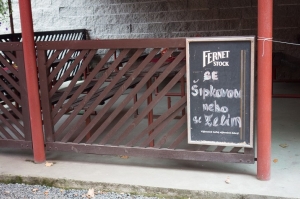 FERNET
STOCK
SE
Šipkovou
nebo
se Zelím